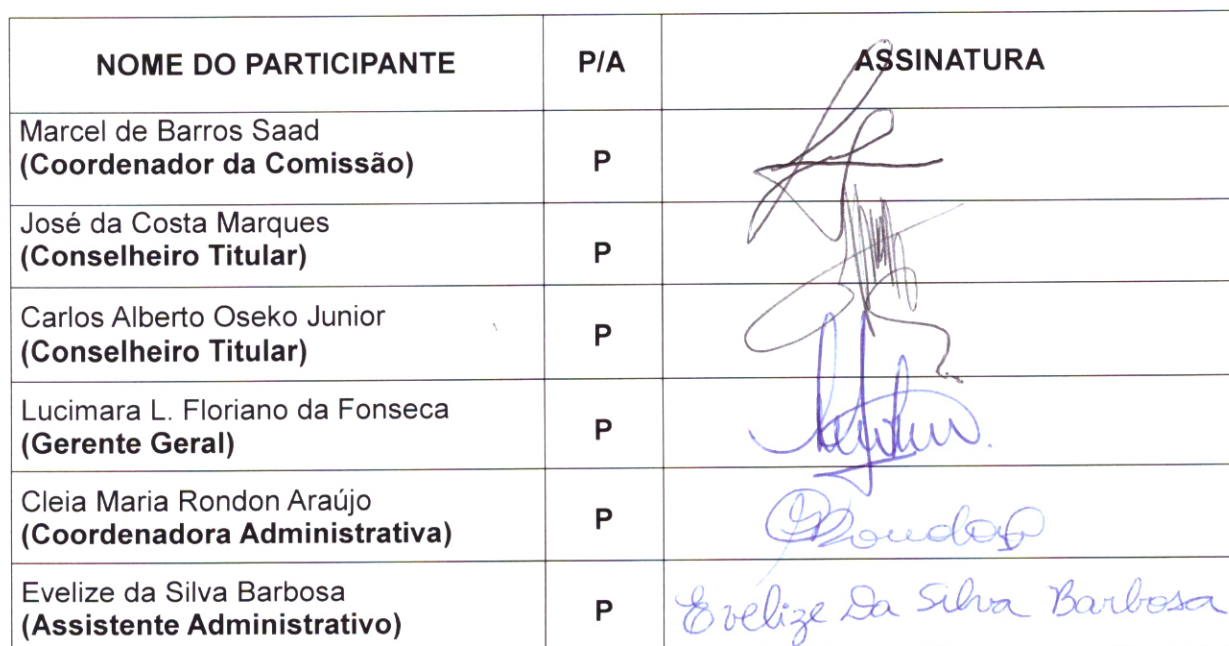 NOME DO PARTICIPANTE P/A ASSINATURA
Marcel de Barros Saad
(Coordenador da Comissão) P
José da Costa Marques
(Conselheiro Titular) P
Carlos Alberto Oseko Junior
(Conselheiro Titular) P
Lucimara L. Floriano da Fonseca
(Gerente Geral) P
Cleia Maria Rondon Araújo
(Coordenadora Administrativa) P
Evelize da Silva Barbosa
(Assistente Administrativo) P Evelize Da Silva Barbosa